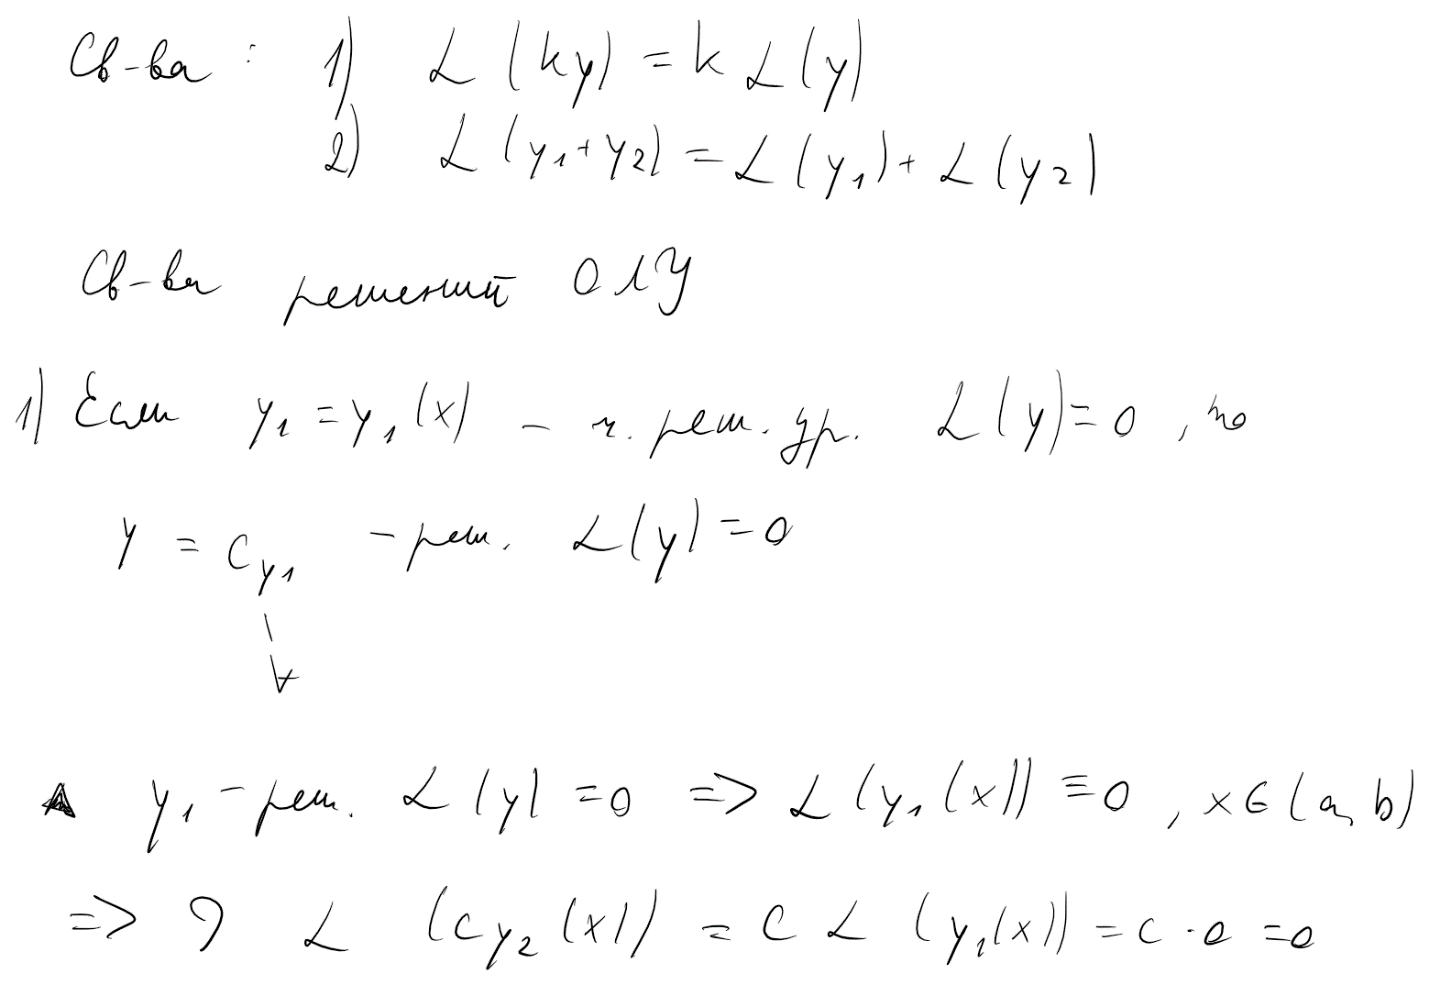 Св-ва : 1) L (ky) = k L(y)
2) L (y₁+y₂) = L(y₁) + L(y₂)
Св-ва решений ОЛУ
1) Если y₁ = y₁(x) – ч. реш. ур. L(y)=0, то
y = Cy₁ – реш. L(y)=0
∀
▲ y₁ – реш. L(y)=0 => L(y₁(x)) ≡ 0, x∈(a, b)
=> L (Cy₂(x)) = C L (y₁(x)) = C·0 =0